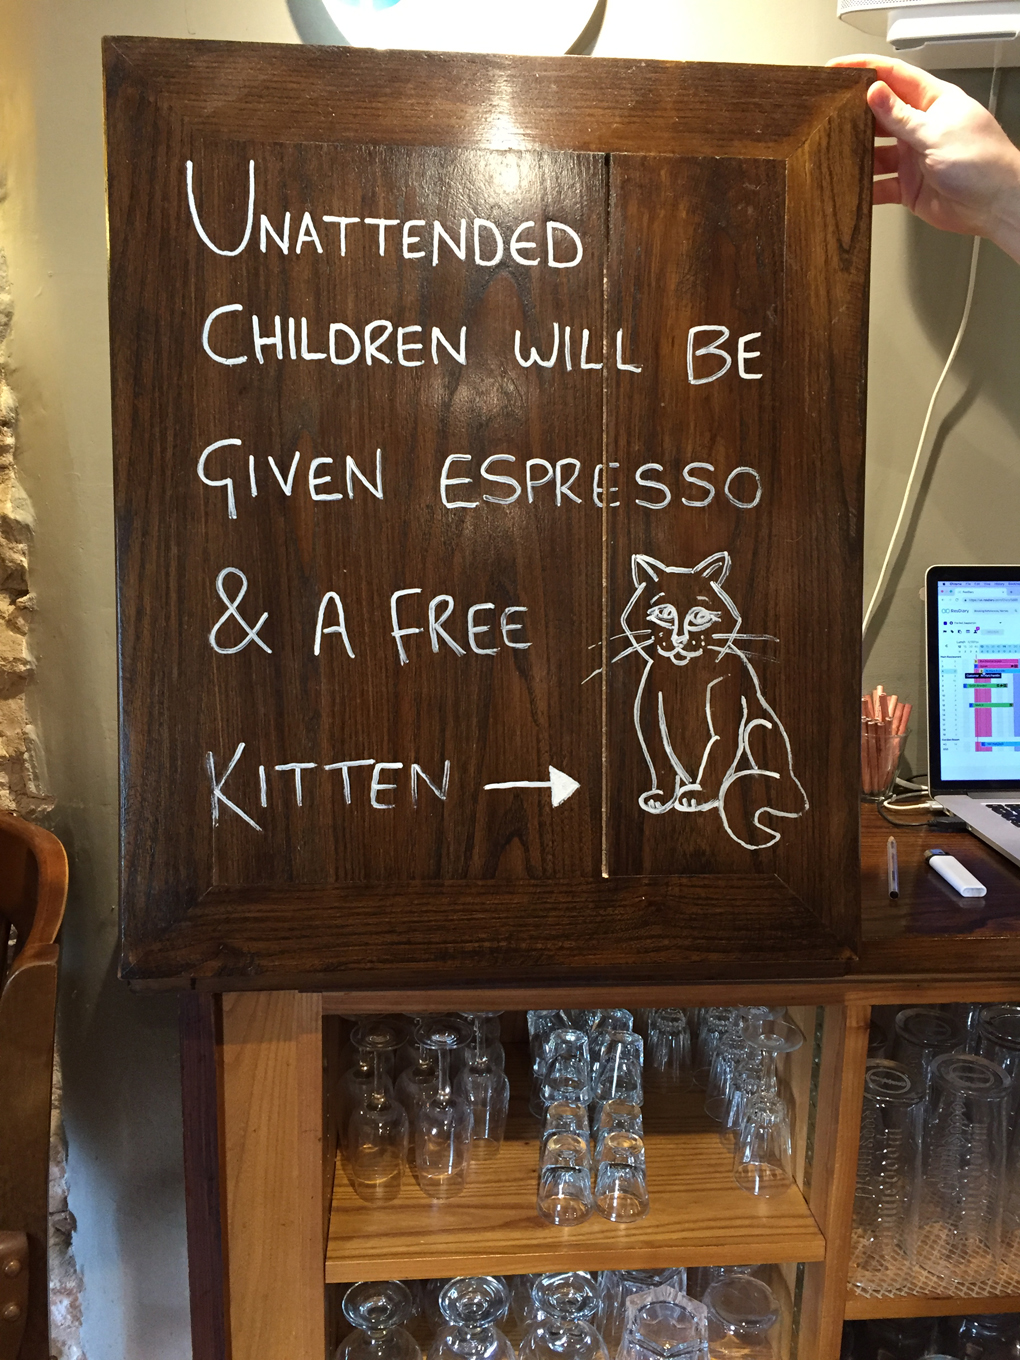 UNATTENDED
CHILDREN WILL BE
GIVEN ESPRESSO
& A FREE
KITTEN →